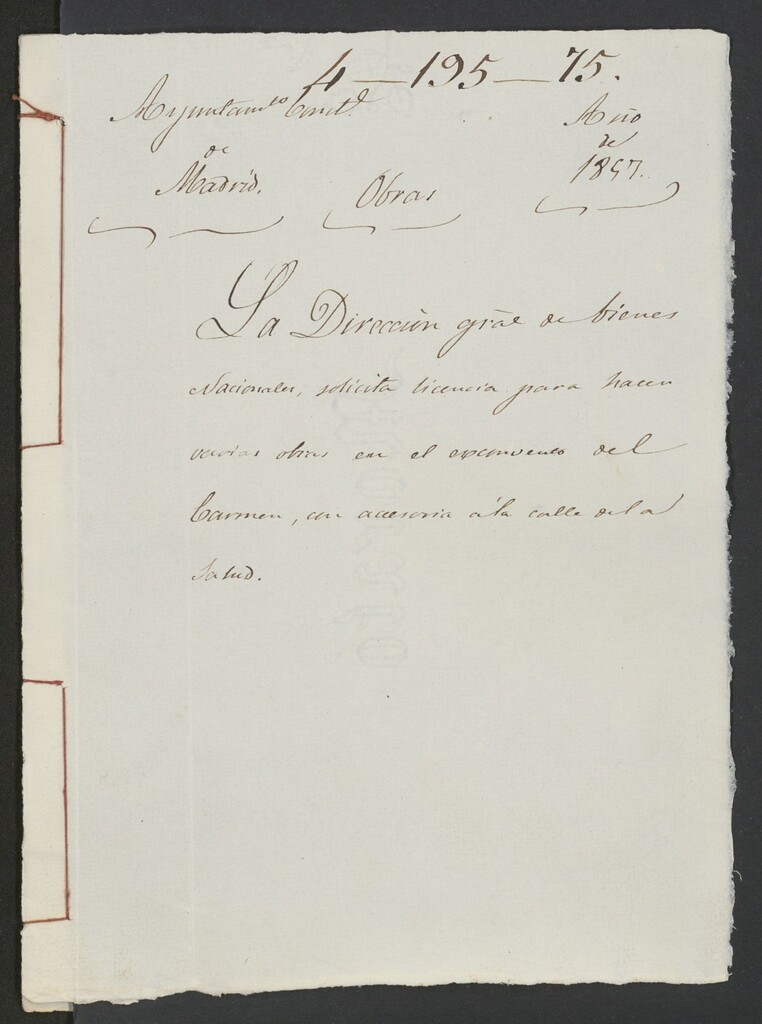 4 — 195 — 75.
Ayuntam.to Const.l
Año
de
de
Madrid.
Obras
1857.
La Dirección gral de bienes
Nacionales, solicita licencia para hacer
varias obras en el exconvento del
Carmen, con accesoria á la calle de la
Salud.